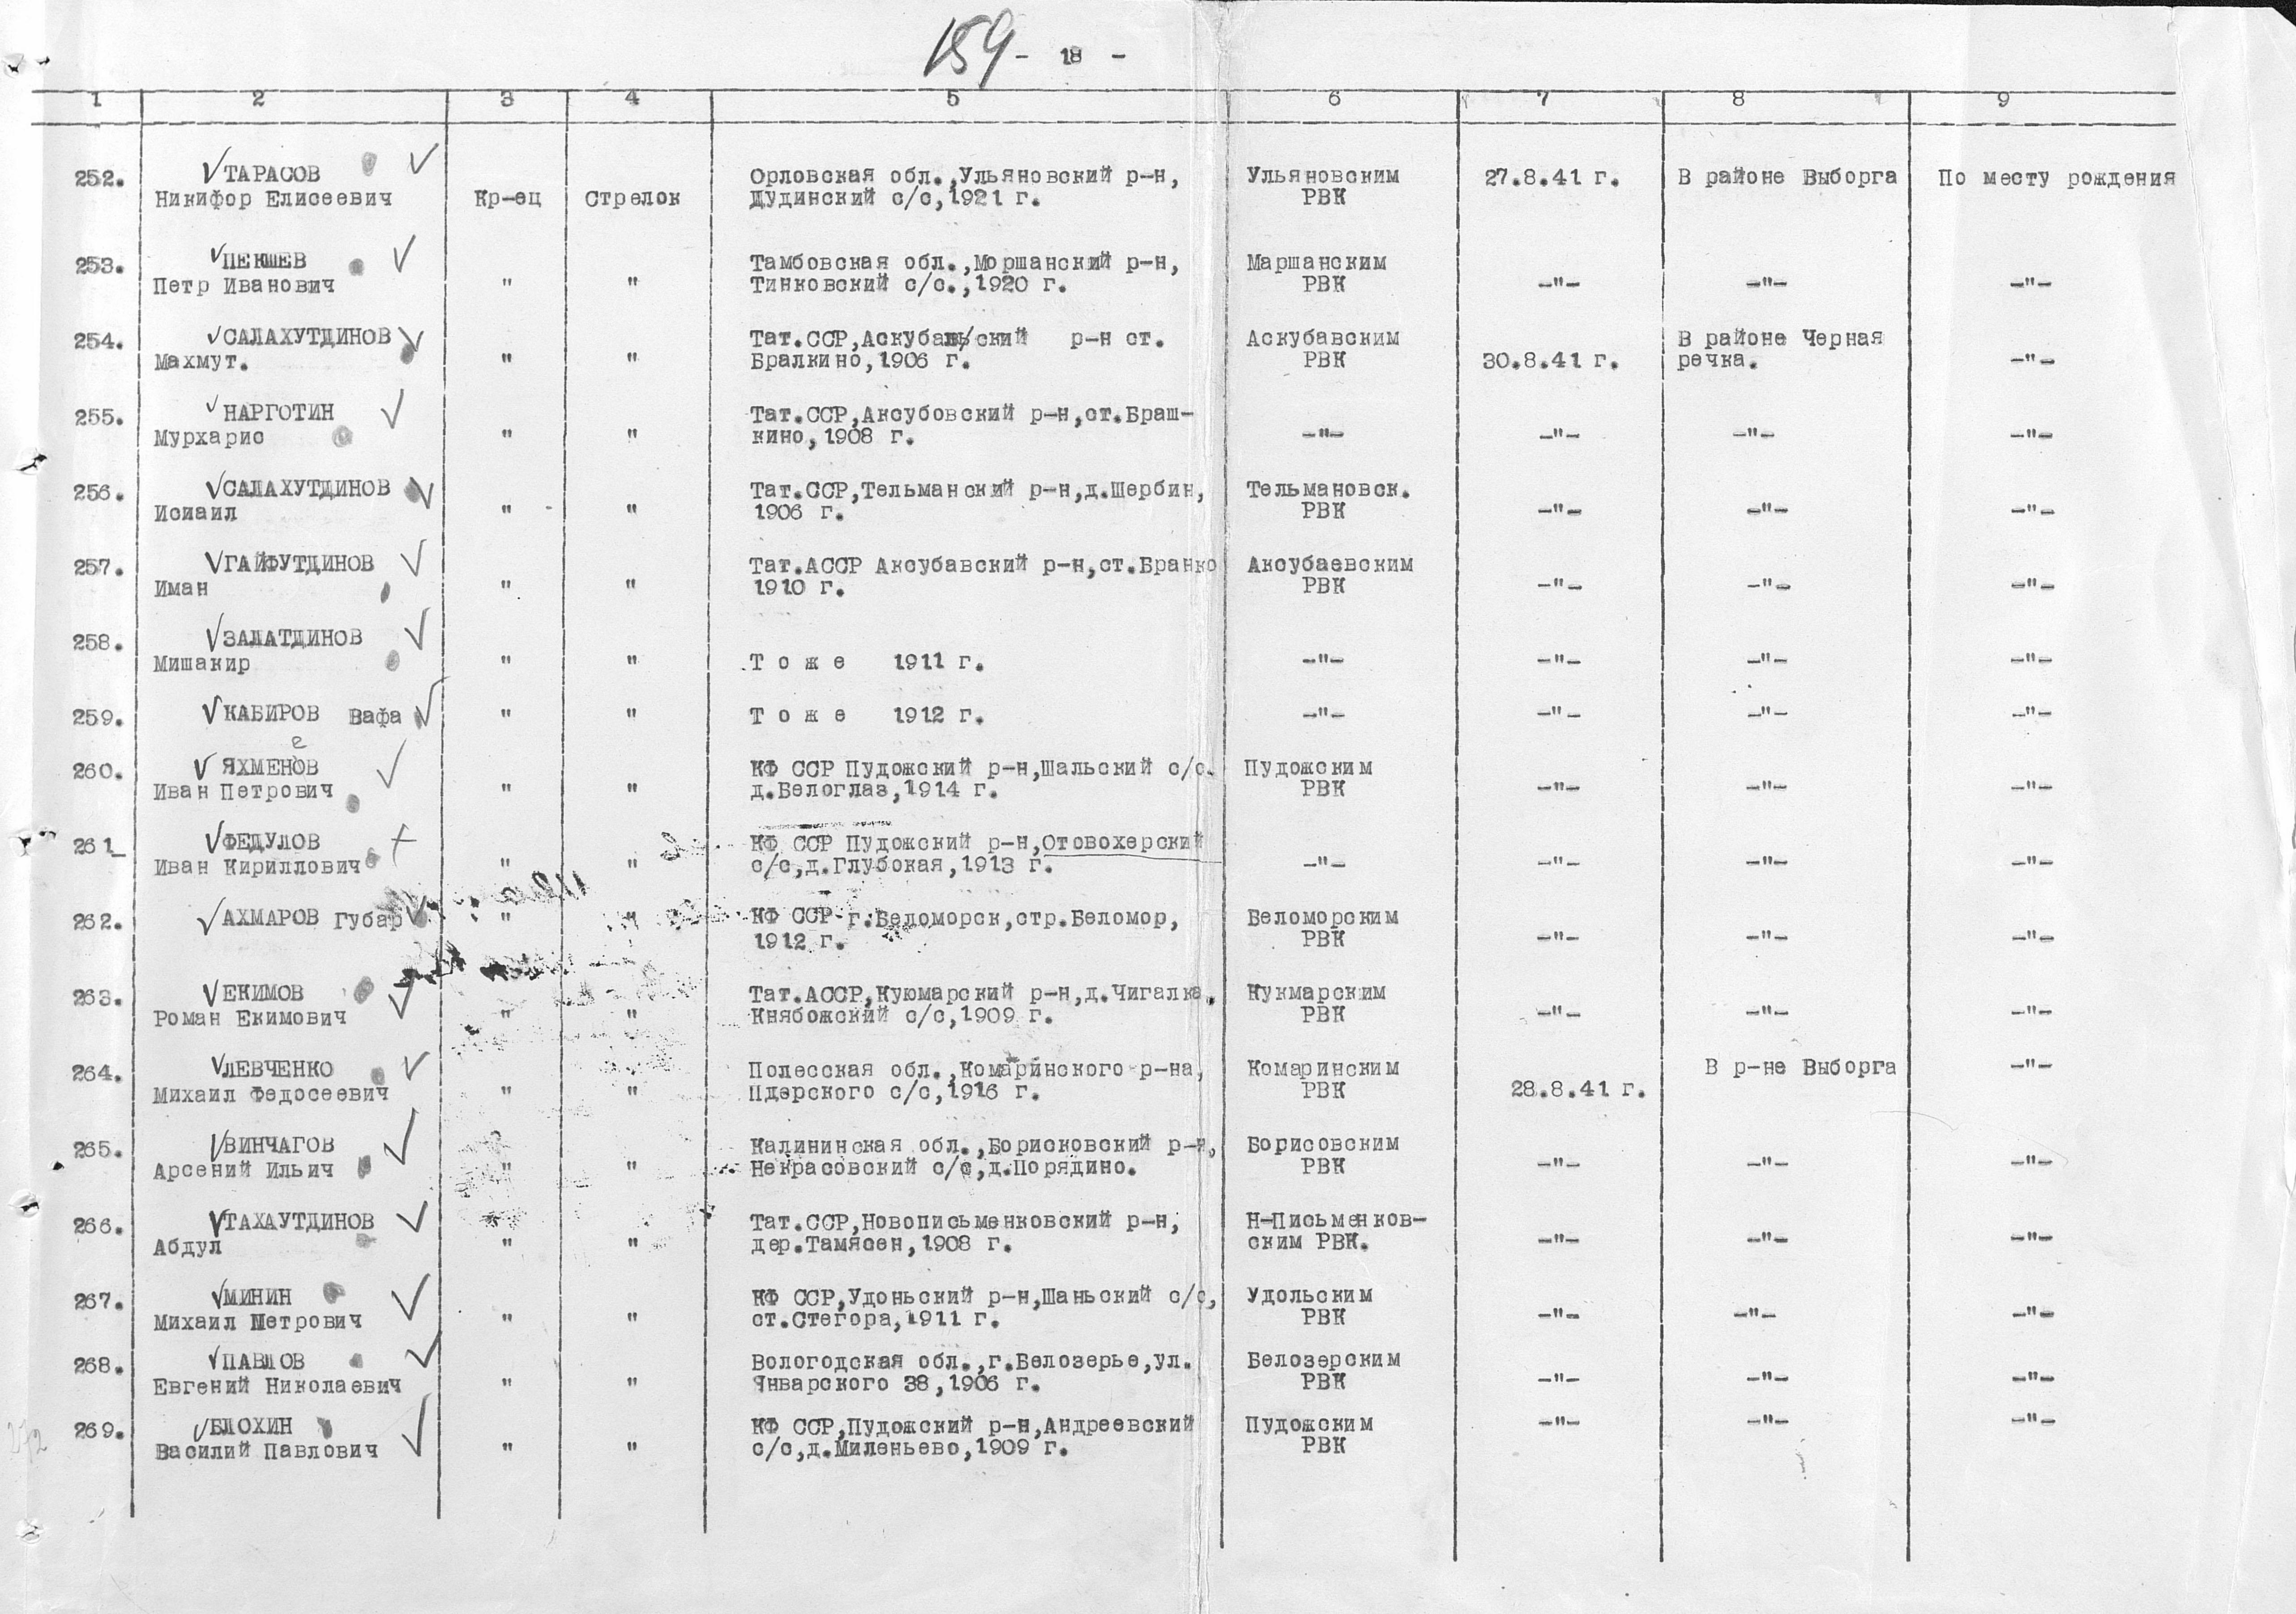 159 - 18 -
1 2 3 4 5 6 7 8 9
252. ТАРАСОВ Орловская обл.,Ульяновский р-н, Ульяновским 27.8.41 г. В районе Выборга По месту рождения
Никифор Елисеевич Кр-ец Стрелок Дудинский с/с,1921 г. РВК
253. ПЕКШЕВ Тамбовская обл.,Моршанский р-н, Маршанским
Петр Иванович " " Тинковский с/с.,1920 г. РВК -"- -"- -"-
254. САЛАХУТДИНОВ Тат.ССР,Аскубавский р-н ст. Аскубавским В районе Черная
Махмут. " " Бралкино,1906 г. РВК 30.8.41 г. речка. -"-
255. НАРГОТИН Тат.ССР,Аксубовский р-н,ст.Браш-
Мурхарис " " кино,1908 г. -"- -"- -"- -"-
256. САЛАХУТДИНОВ Тат.ССР,Тельманский р-н,д.Щербин, Тельмановск.
Исиаил " " 1906 г. РВК -"- -"- -"-
257. ГАЙФУТДИНОВ Тат.АССР Аксубавский р-н,ст.Бранко Аксубаевским
Иман " " 1910 г. РВК -"- -"- -"-
258. ЗАЛАТДИНОВ
Мишакир " " Т о ж е 1911 г. -"- -"- -"- -"-
259. КАБИРОВ Вафа " " Т о ж е 1912 г. -"- -"- -"- -"-
е
260. ЯХМЕНОВ КФ ССР Пудожский р-н,Шальский с/с. Пудожским
Иван Петрович " " д.Белоглаз,1914 г. РВК -"- -"- -"-
261_ ФЕДУЛОВ КФ ССР Пудожский р-н,Отовохерский
Иван Кириллович " " с/с,д.Глубокая,1913 г. -"- -"- -"- -"-
262. АХМАРОВ Губар " " КФ ССР г.Беломорск,стр.Беломор, Беломорским
1912 г. РВК -"- -"- -"-
263. ЕКИМОВ Тат.АССР,Куюмарский р-н,д.Чигалка, Кукмарским
Роман Екимович " " Княбожский с/с,1909 г. РВК -"- -"- -"-
264. ЛЕВЧЕНКО Полесская обл.,Комаринского р-на, Комаринским В р-не Выборга -"-
Михаил Федосеевич " " Пдерского с/с,1916 г. РВК 28.8.41 г.
265. ВИНЧАГОВ Калининская обл.,Борисковский р-н, Борисовским
Арсений Ильич " " Некрасовский с/с,д.Порядино. РВК -"- -"- -"-
266. ТАХАУТДИНОВ Тат.ССР,Новописьменковский р-н, Н-Письменков-
Абдул " " дер.Тамясен,1908 г. ским РВК. -"- -"- -"-
267. МИНИН КФ ССР,Удоньский р-н,Шаньский с/с, Удольским
Михаил Петрович " " ст.Стегора,1911 г. РВК -"- -"- -"-
268. ПАВЛОВ Вологодская обл.,г.Белозерье,ул. Белозерским
Евгений Николаевич " " Январского 38,1906 г. РВК -"- -"- -"-
269. БЛОХИН КФ ССР,Пудожский р-н,Андреевский Пудожским -"- -"- -"-
Василий Павлович " " с/с,д.Миленьево,1909 г. РВК